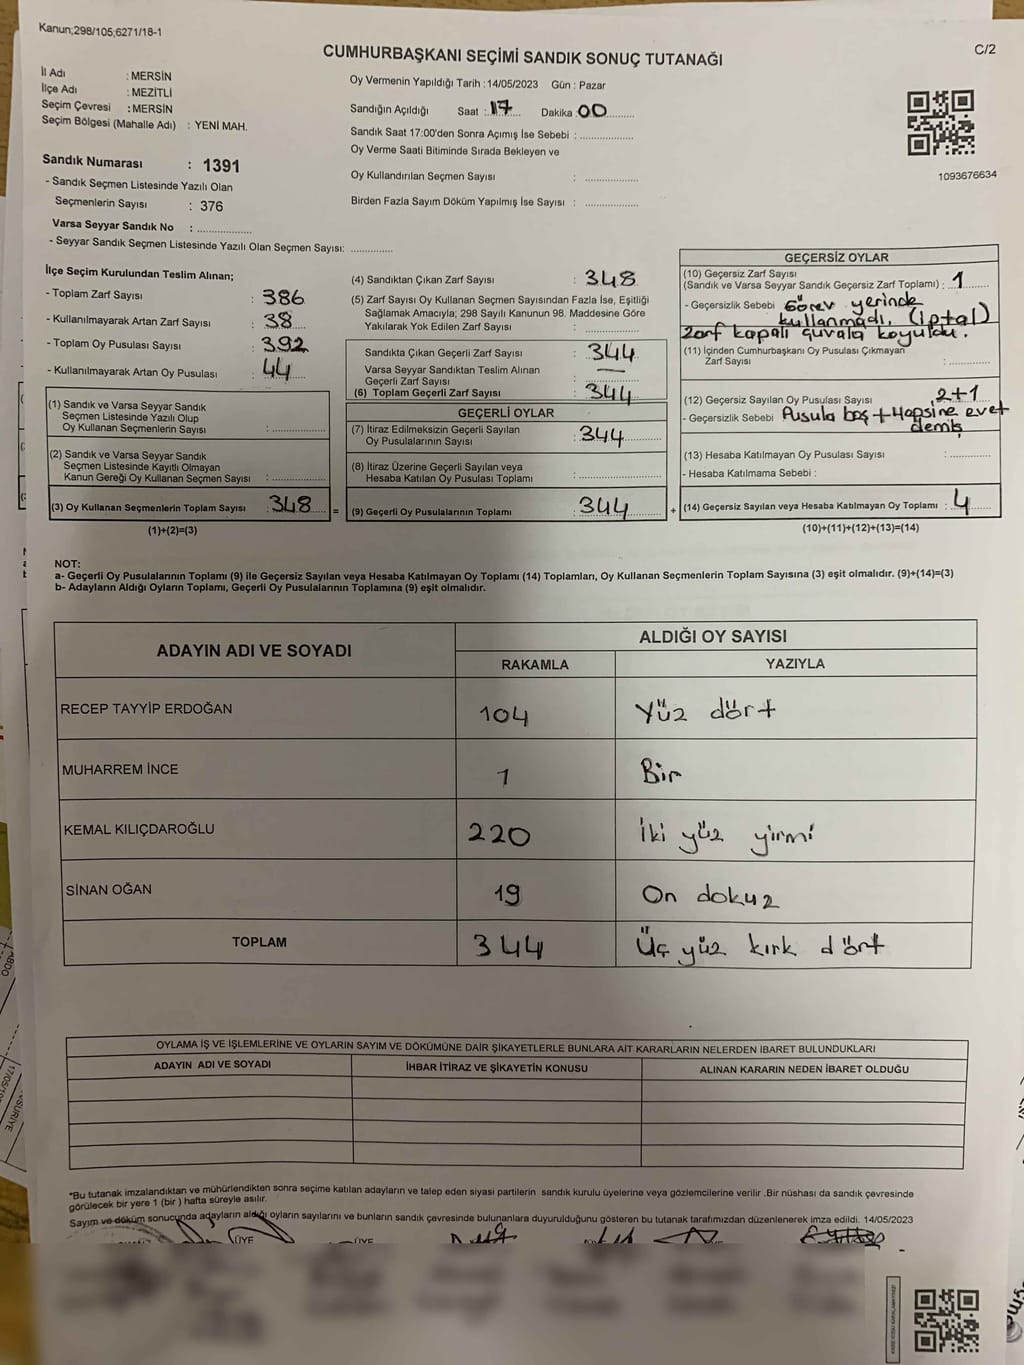 Kanun;298/105;6271/18-1
C/2
CUMHURBAŞKANI SEÇİMİ SANDIK SONUÇ TUTANAĞI
İl Adı : MERSİN
İlçe Adı : MEZİTLİ
Seçim Çevresi : MERSİN
Seçim Bölgesi (Mahalle Adı) : YENİ MAH.
Oy Vermenin Yapıldığı Tarih : 14/05/2023 Gün : Pazar
Sandığın Açıldığı Saat : 17 Dakika : 00
Sandık Saat 17:00'den Sonra Açımış İse Sebebi :
Oy Verme Saati Bitiminde Sırada Bekleyen ve
Oy Kullandırılan Seçmen Sayısı :
Birden Fazla Sayım Döküm Yapılmış İse Sayısı :
1093676634
Sandık Numarası : 1391
- Sandık Seçmen Listesinde Yazılı Olan
Seçmenlerin Sayısı : 376
Varsa Seyyar Sandık No :
- Seyyar Sandık Seçmen Listesinde Yazılı Olan Seçmen Sayısı:
İlçe Seçim Kurulundan Teslim Alınan;
- Toplam Zarf Sayısı : 386
- Kullanılmayarak Artan Zarf Sayısı : 38
- Toplam Oy Pusulası Sayısı : 392
- Kullanılmayarak Artan Oy Pusulası : 44
(1) Sandık ve Varsa Seyyar Sandık
Seçmen Listesinde Yazılı Olup
Oy Kullanan Seçmenlerin Sayısı :
(2) Sandık ve Varsa Seyyar Sandık
Seçmen Listesinde Kayıtlı Olmayan
Kanun Gereği Oy Kullanan Seçmen Sayısı :
(3) Oy Kullanan Seçmenlerin Toplam Sayısı : 348 =
(1)+(2)=(3)
(4) Sandıktan Çıkan Zarf Sayısı : 348
(5) Zarf Sayısı Oy Kullanan Seçmen Sayısından Fazla İse, Eşitliği
Sağlamak Amacıyla; 298 Sayılı Kanunun 98. Maddesine Göre
Yakılarak Yok Edilen Zarf Sayısı :
Sandıkta Çıkan Geçerli Zarf Sayısı : 344
Varsa Seyyar Sandıktan Teslim Alınan
Geçerli Zarf Sayısı : —
(6) Toplam Geçerli Zarf Sayısı : 344
GEÇERLİ OYLAR
(7) İtiraz Edilmeksizin Geçerli Sayılan
Oy Pusulalarının Sayısı : 344
(8) İtiraz Üzerine Geçerli Sayılan veya
Hesaba Katılan Oy Pusulası Toplamı :
(9) Geçerli Oy Pusulalarının Toplamı : 344 +
GEÇERSİZ OYLAR
(10) Geçersiz Zarf Sayısı
(Sandık ve Varsa Seyyar Sandık Geçersiz Zarf Toplamı) : 1
- Geçersizlik Sebebi Görev yerinde
kullanmadı. (iptal)
Zarf kapalı çuvala koyuldu.
(11) İçinden Cumhurbaşkanı Oy Pusulası Çıkmayan
Zarf Sayısı :
(12) Geçersiz Sayılan Oy Pusulası Sayısı 2+1
- Geçersizlik Sebebi Pusula boş + Hepsine evet
demiş
(13) Hesaba Katılmayan Oy Pusulası Sayısı :
- Hesaba Katılmama Sebebi :
(14) Geçersiz Sayılan veya Hesaba Katılmayan Oy Toplamı : 4
(10)+(11)+(12)+(13)=(14)
NOT:
a- Geçerli Oy Pusulalarının Toplamı (9) ile Geçersiz Sayılan veya Hesaba Katılmayan Oy Toplamı (14) Toplamları, Oy Kullanan Seçmenlerin Toplam Sayısına (3) eşit olmalıdır. (9)+(14)=(3)
b- Adayların Aldığı Oyların Toplamı, Geçerli Oy Pusulalarının Toplamına (9) eşit olmalıdır.
ADAYIN ADI VE SOYADI
ALDIĞI OY SAYISI
RAKAMLA YAZIYLA
RECEP TAYYİP ERDOĞAN 104 Yüz dört
MUHARREM İNCE 1 Bir
KEMAL KILIÇDAROĞLU 220 İki yüz yirmi
SİNAN OĞAN 19 On dokuz
TOPLAM 344 Üç yüz kırk dört
OYLAMA İŞ VE İŞLEMLERİNE VE OYLARIN SAYIM VE DÖKÜMÜNE DAİR ŞİKAYETLERLE BUNLARA AİT KARARLARIN NELERDEN İBARET BULUNDUKLARI
ADAYIN ADI VE SOYADI İHBAR İTİRAZ VE ŞİKAYETİN KONUSU ALINAN KARARIN NEDEN İBARET OLDUĞU
*Bu tutanak imzalandıktan ve mühürlendikten sonra seçime katılan adayların ve talep eden siyasi partilerin sandık kurulu üyelerine veya gözlemcilerine verilir .Bir nüshası da sandık çevresinde
görülecek bir yere 1 (bir ) hafta süreyle asılır.
Sayım ve döküm sonucunda adayların aldığı oyların sayılarını ve bunların sandık çevresinde bulunanlara duyurulduğunu gösteren bu tutanak tarafımızdan düzenlenerek imza edildi. 14/05/2023
ÜYE ÜYE